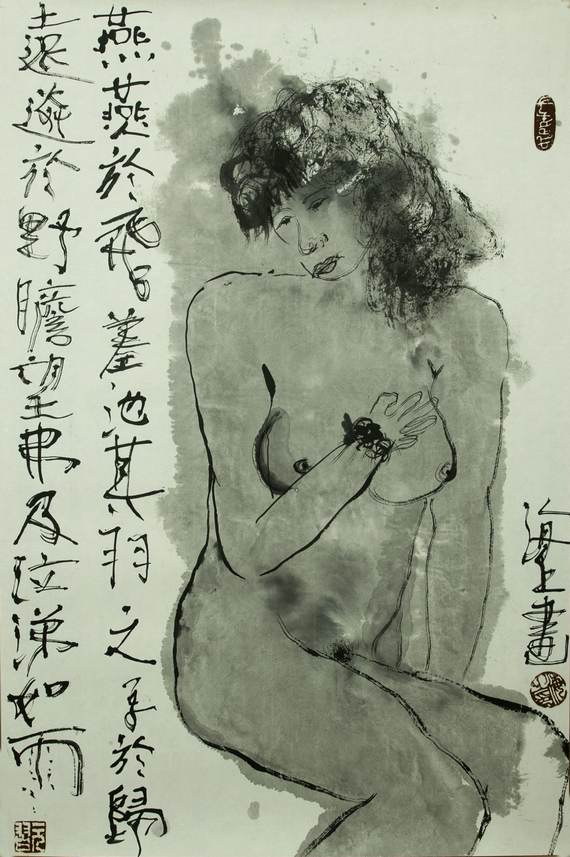 燕燕於飛差池其羽之子於歸
遠送於野瞻望弗及泣涕如雨
海上畫